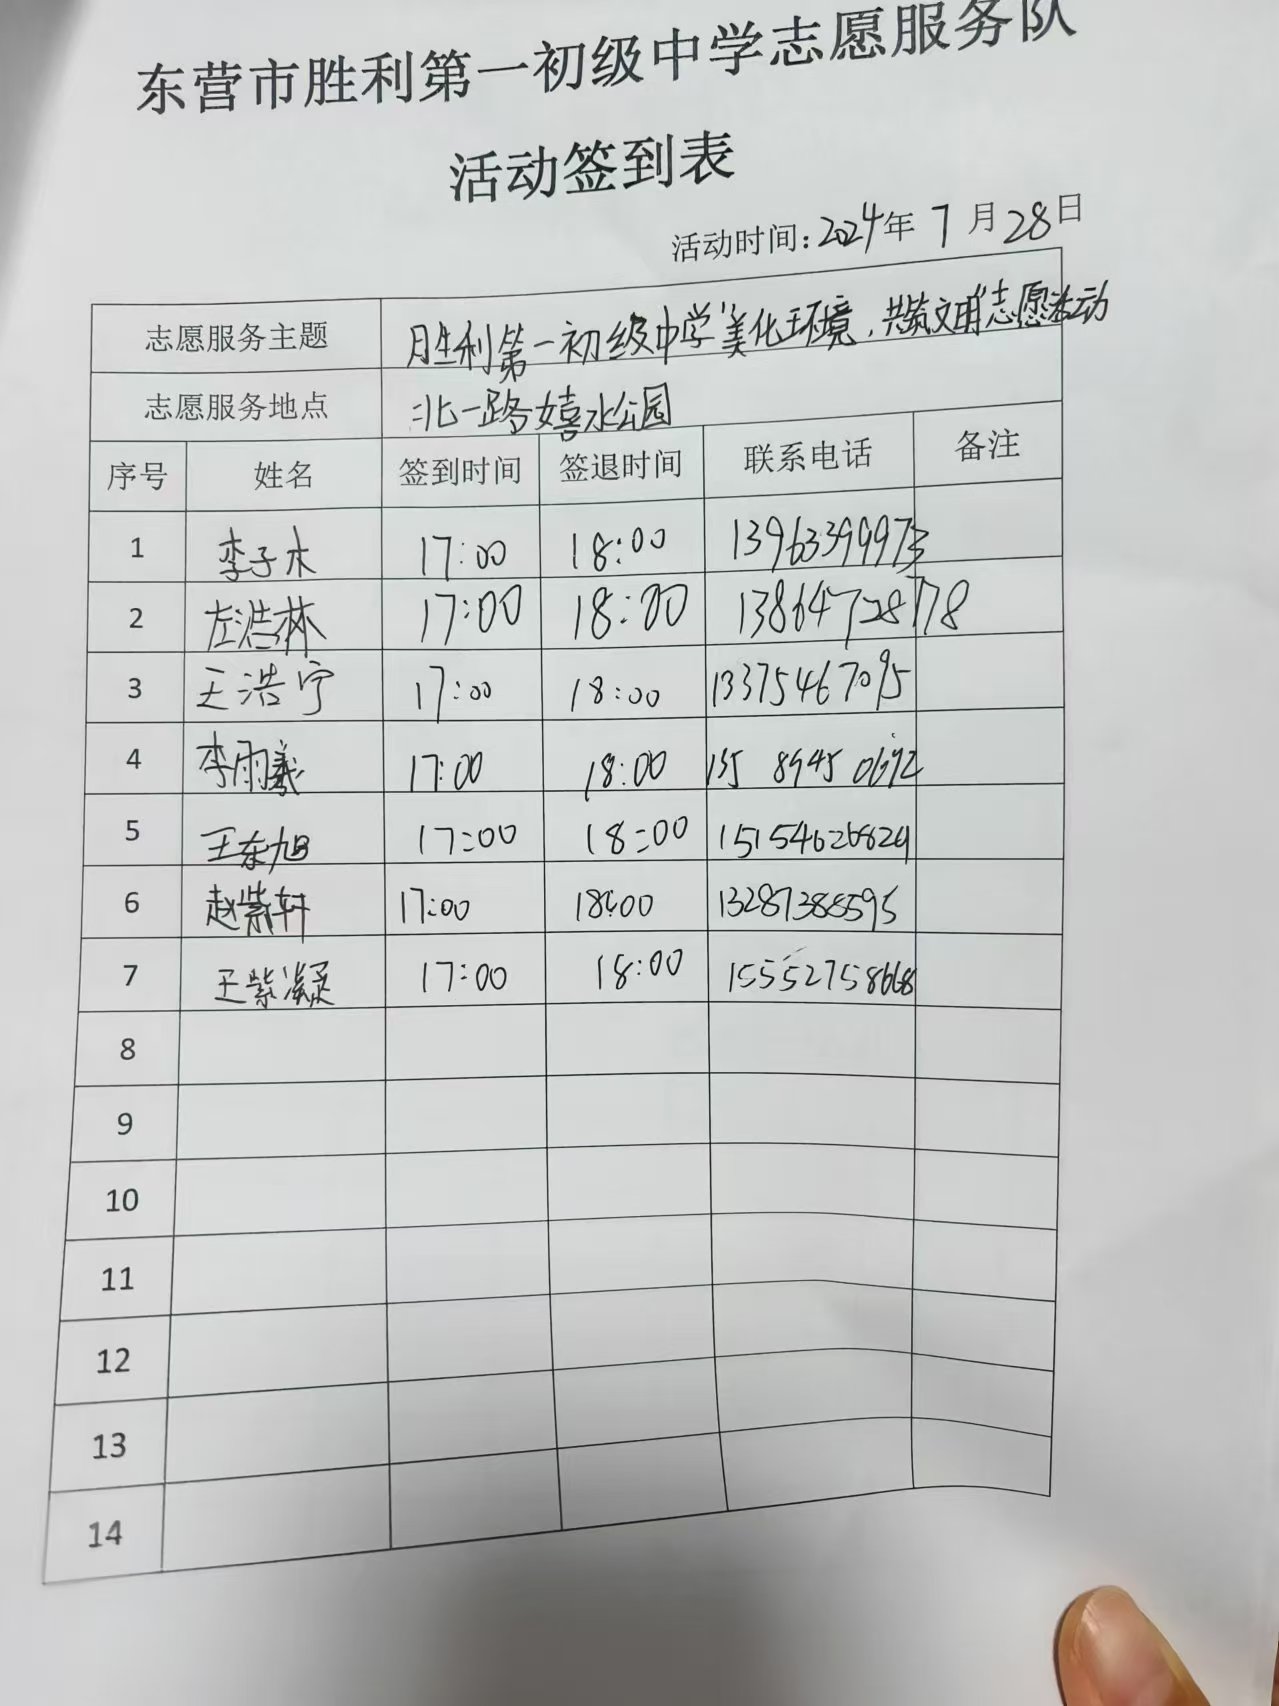 东营市胜利第一初级中学志愿服务队
活动签到表
活动时间:2024年7月28日
志愿服务主题 胜利第一初级中学"美化环境,共筑文明"志愿活动
志愿服务地点 北一路嬉水公园
序号 姓名 签到时间 签退时间 联系电话 备注
1 李子木 17:00 18:00 13963399973
2 左浩林 17:00 18:00 13864728778
3 王浩宇 17:00 18:00 13375467095
4 李雨羲 17:00 18:00 135 8945 0692
5 王东旭 17:00 18:00
6 赵紫轩 17:00 18:00 13287388595
7 王紫凝 17:00 18:00 15552758668
8
9
10
11
12
13
14